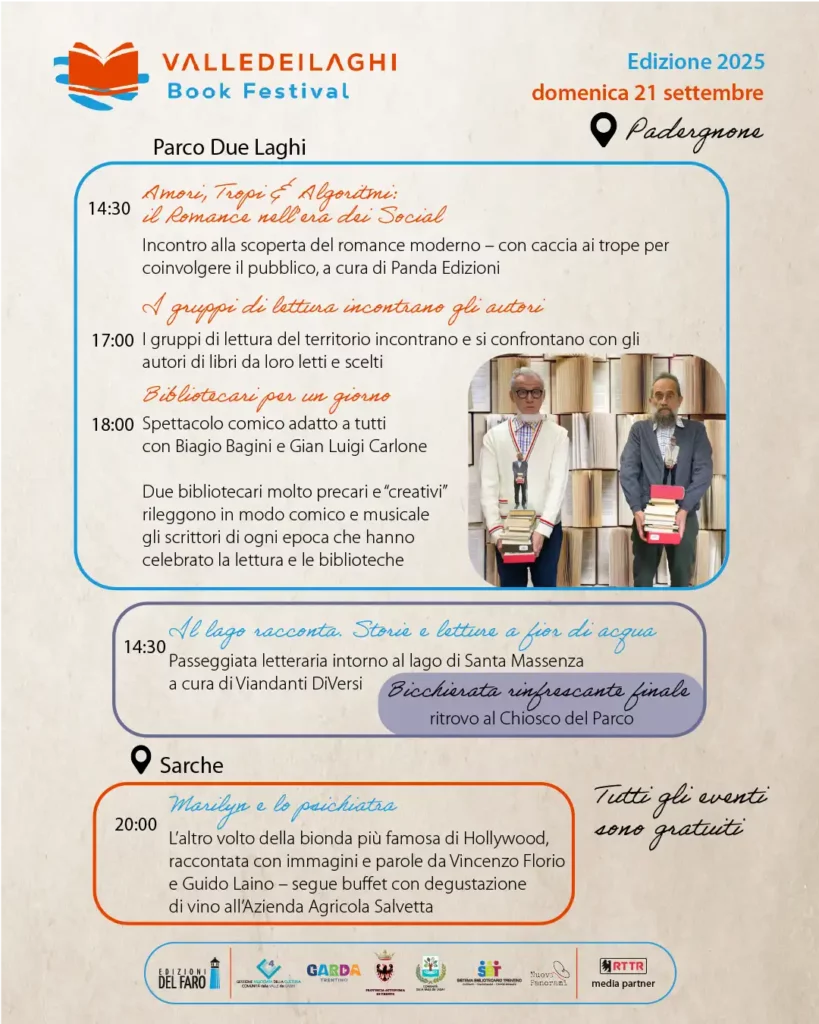 VALLEDEILAGHI
Book Festival
Edizione 2025
domenica 21 settembre
Padergnone
Parco Due Laghi
14:30
Amori, Tropi & Algoritmi:
il Romance nell'era dei Social
Incontro alla scoperta del romance moderno – con caccia ai trope per
coinvolgere il pubblico, a cura di Panda Edizioni
I gruppi di lettura incontrano gli autori
17:00
I gruppi di lettura del territorio incontrano e si confrontano con gli
autori di libri da loro letti e scelti
Bibliotecari per un giorno
18:00
Spettacolo comico adatto a tutti
con Biagio Bagini e Gian Luigi Carlone
Due bibliotecari molto precari e "creativi"
rileggono in modo comico e musicale
gli scrittori di ogni epoca che hanno
celebrato la lettura e le biblioteche
14:30
Il lago racconta. Storie e letture a fior di acqua
Passeggiata letteraria intorno al lago di Santa Massenza
a cura di Viandanti DiVersi
Bicchierata rinfrescante finale
ritrovo al Chiosco del Parco
Sarche
20:00
Marilyn e lo psichiatra
L'altro volto della bionda più famosa di Hollywood,
raccontata con immagini e parole da Vincenzo Florio
e Guido Laino – segue buffet con degustazione
di vino all'Azienda Agricola Salvetta
Tutti gli eventi
sono gratuiti
EDIZIONI
DEL FARO
GARDA
TRENTINO
PROVINCIA AUTONOMA
DI TRENTO
SBT
SISTEMA BIBLIOTECARIO TRENTINO
Nuovi
Panorami
RTTR
media partner